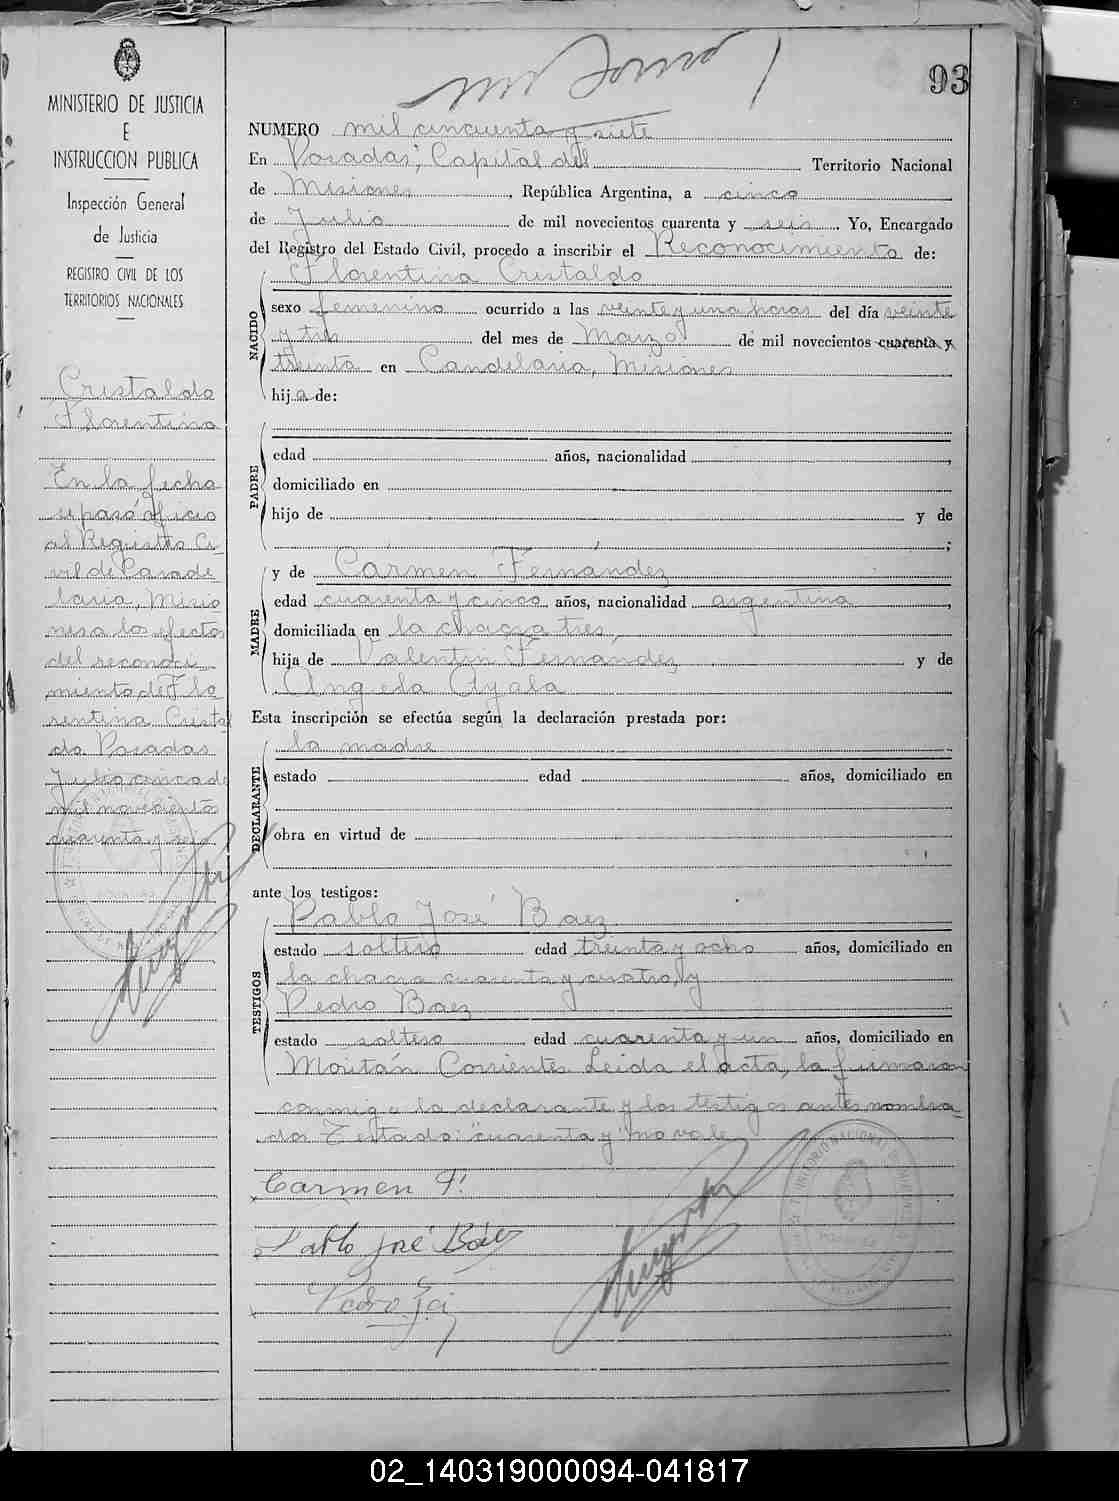 93
MINISTERIO DE JUSTICIA
E
INSTRUCCION PUBLICA
Inspección General
de Justicia
REGISTRO CIVIL DE LOS
TERRITORIOS NACIONALES
Cristaldo
Florentina
En la fecha
se pasó oficio
al Registro Ci-
vil de Cande-
laria, Misio-
nes a los efectos
del reconoci-
miento de Flo
rentina Crista
do. Posadas
Julio cinco de
mil novecientos
cuarenta y seis
NUMERO mil cincuenta y siete
En Posadas, Capital del Territorio Nacional
de Misiones, República Argentina, a cinco
de Julio de mil novecientos cuarenta y seis. Yo, Encargado
del Registro del Estado Civil, procedo a inscribir el Reconocimiento de:
Florentina Cristaldo
NACIDO
sexo femenino ocurrido a las veinte y una horas del día veinte
y tres del mes de Marzo de mil novecientos cuarenta y
treinta en Candelaria, Misiones
hija de:
PADRE
edad años, nacionalidad ,
domiciliado en
hijo de y de
;
MADRE
y de Cármen Fernández
edad cuarenta y cinco años, nacionalidad argentina,
domiciliada en la chacra tres,
hija de Valentín Fernández y de
Angela Ayala
Esta inscripción se efectúa según la declaración prestada por:
DECLARANTE
la madre
estado edad años, domiciliado en
obra en virtud de
ante los testigos:
TESTIGOS
Pablo José Baez
estado soltero edad treinta y ocho años, domiciliado en
la chacra cuarenta y cuatro, y
Pedro Baez
estado soltero edad cuarenta y un años, domiciliado en
Corrientes. Leída el acta, la firmaron
conmigo la declarante y los testigos antes nombra-
dos. Testado: "cuarenta y" no vale
Carmen F.
Pablo José Báez
Pedro
02_140319000094-041817